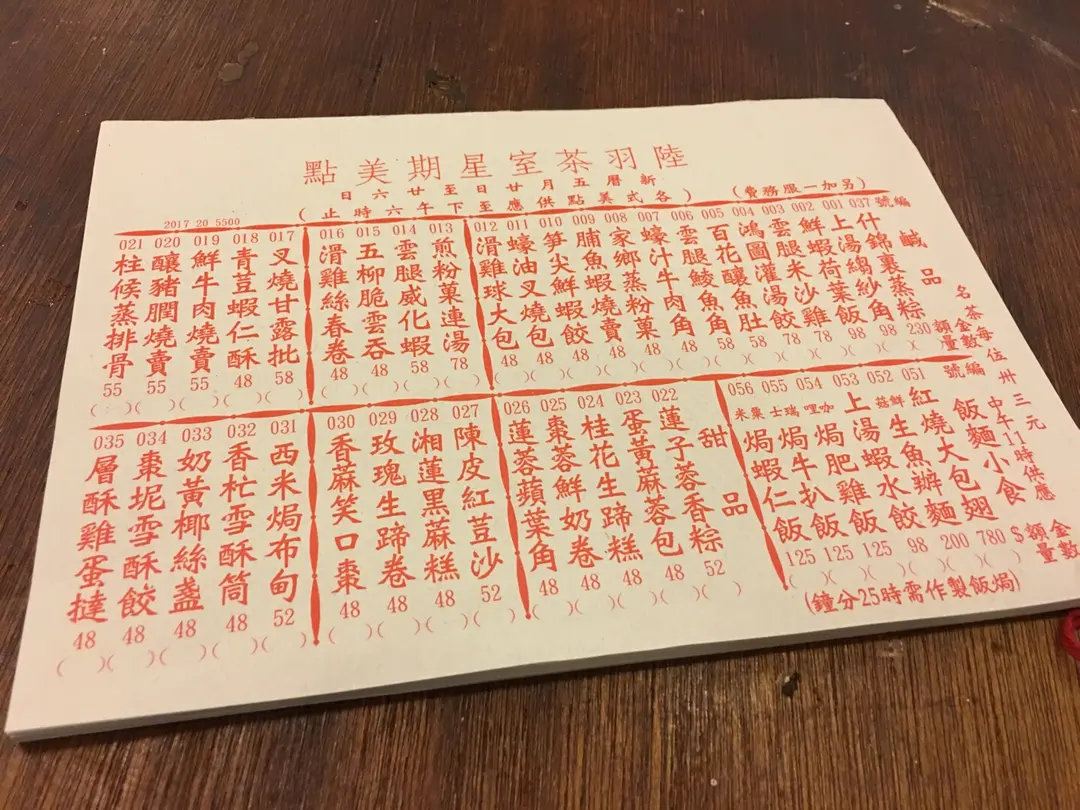 陸羽茶室星期美點
新曆五月廿日至廿六日
(各式美點供應至下午六時止)
(另加一服務費)
2017 20 5500
名茶每位卅三元
中午11時供應
鹹品
編號
金額
數量
037 什錦裹蒸粽 230 ( )
001 上湯縐紗角 98 ( )
002 鮮蝦荷葉飯 98 ( )
003 雲腿米沙雞 78 ( )
004 鴻圖灌湯餃 78 ( )
005 百花釀魚肚 58 ( )
006 雲腿鯪魚角 58 ( )
007 蠔汁牛肉角 48 ( )
008 家鄉蒸粉菓 48 ( )
009 脯魚蝦燒賣 48 ( )
010 筍尖鮮蝦餃 48 ( )
011 蠔油叉燒包 48 ( )
012 滑雞球大包 48 ( )
013 煎粉菓連湯 78 ( )
014 雲腿威化蝦 58 ( )
015 五柳脆雲吞 48 ( )
016 滑雞絲春卷 48 ( )
017 叉燒甘露批 58 ( )
018 青豆蝦仁酥 48 ( )
019 鮮牛肉燒賣 55 ( )
020 釀豬膶燒賣 55 ( )
021 柱候蒸排骨 55 ( )
飯麵小食
編號
金額 $
數量
051 紅燒大包翅 780 ( )
052 鮮菇生魚辦麵 200 ( )
053 上湯蝦水餃 98 ( )
054 咖喱焗肥雞飯 125 ( )
055 瑞士焗牛扒飯 125 ( )
056 粟米焗蝦仁飯 125 ( )
(焗飯製作需時25分鐘)
甜品
022 蓮子蓉香粽 52 ( )
023 蛋黃麻蓉包 48 ( )
024 桂花生蹄糕 48 ( )
025 棗蓉鮮奶卷 48 ( )
026 蓮蓉蘋葉角 48 ( )
027 陳皮紅荳沙 52 ( )
028 湘蓮黑蔴糕 48 ( )
029 玫瑰生蹄卷 48 ( )
030 香蔴笑口棗 48 ( )
031 西米焗布甸 52 ( )
032 香杧雪酥筒 48 ( )
033 奶黃椰絲盞 48 ( )
034 棗坭雪酥餃 48 ( )
035 層酥雞蛋撻 48 ( )